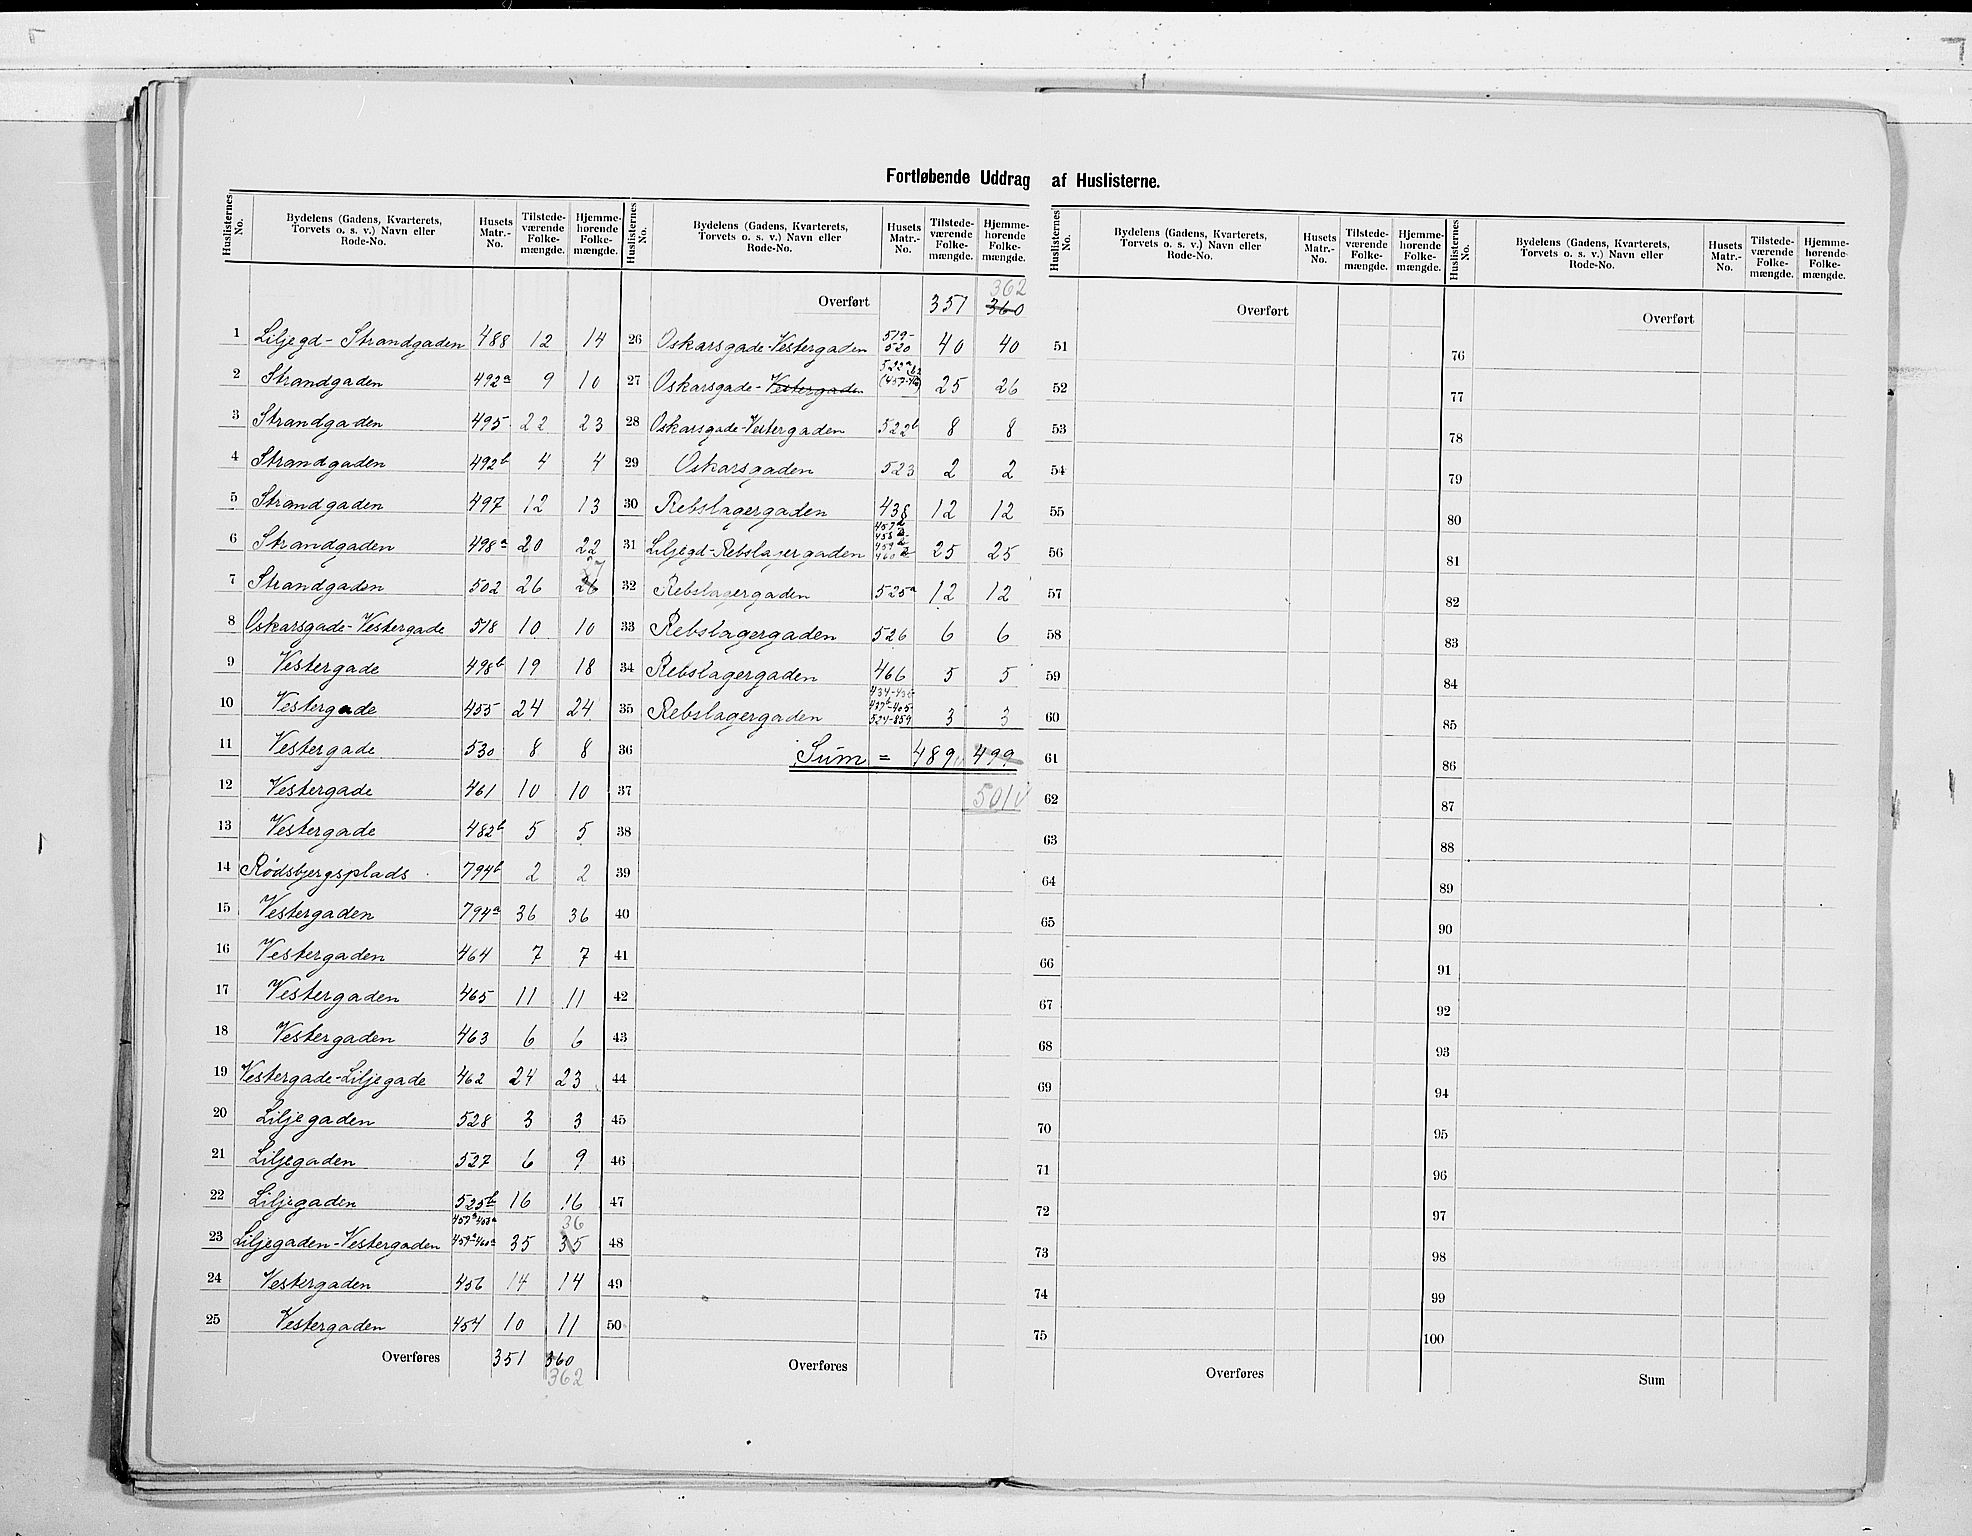 Fortløbende Uddrag af Huslisterne.
Huslisternes No. | Bydelens (Gadens, Kvarterets, Torvets o. s. v.) Navn eller Rode-No. | Husets Matr.-No. | Tilstede-værende Folke-mængde. | Hjemme-hørende Folke-mængde.
1 Liljegd- Strandgaden 488 12 14
2 Strandgaden 492a 9 10
3 Strandgaden 495 22 23
4 Strandgaden 492b 4 4
5 Strandgaden 497 12 13
6 Strandgaden 498a 20 22
7 Strandgaden 502 26 26 27
8 Oskarsgade-Vestergade 518 10 10
9 Vestergade 498b 19 18
10 Vestergade 455 24 24
11 Vestergade 530 8 8
12 Vestergade 461 10 10
13 Vestergade 482b 5 5
14 Rødsbjergsplads 794b 2 2
15 Vestergaden 794a 36 36
16 Vestergaden 464 7 7
17 Vestergaden 465 11 11
18 Vestergaden 463 6 6
19 Vestergade-Liljegade 462 24 23
20 Liljegaden 528 3 3
21 Liljegaden 527 6 9
22 Liljegaden 525b 16 16
23 Liljegaden-Vestergaden 459a-460a 35 35 36
24 Vestergaden 456 14 14
25 Vestergaden 454 10 11
Overføres 351 360
362
Huslisternes No. | Bydelens (Gadens, Kvarterets, Torvets o. s. v.) Navn eller Rode-No. | Husets Matr.-No. | Tilstede-værende Folke-mængde. | Hjemme-hørende Folke-mængde.
362
Overført 351 360
26 Oskarsgade-Vestergaden 519-520 40 40
27 Oskarsgade-Vestergaden 25 26
28 Oskarsgade-Vestergaden 522b 8 8
29 Oskarsgaden 523 2 2
30 Rebslagergaden 438 12 12
31 Liljegd-Rebslagergaden 25 25
32 Rebslagergaden 525a 12 12
33 Rebslagergaden 526 6 6
34 Rebslagergaden 466 5 5
35 Rebslagergaden 524-859 3 3
36 Sum = 489 499
37 501
38
39
40
41
42
43
44
45
46
47
48
49
50
Overføres
Huslisternes No. | Bydelens (Gadens, Kvarterets, Torvets o. s. v.) Navn eller Rode-No. | Husets Matr.-No. | Tilstede-værende Folke-mængde. | Hjemme-hørende Folke-mængde.
Overført
51
52
53
54
55
56
57
58
59
60
61
62
63
64
65
66
67
68
69
70
71
72
73
74
75
Overføres
Huslisternes No. | Bydelens (Gadens, Kvarterets, Torvets o. s. v.) Navn eller Rode-No. | Husets Matr.-No. | Tilstede-værende Folke-mængde. | Hjemme-hørende Folke-mængde.
Overført
76
77
78
79
80
81
82
83
84
85
86
87
88
89
90
91
92
93
94
95
96
97
98
99
100
Sum